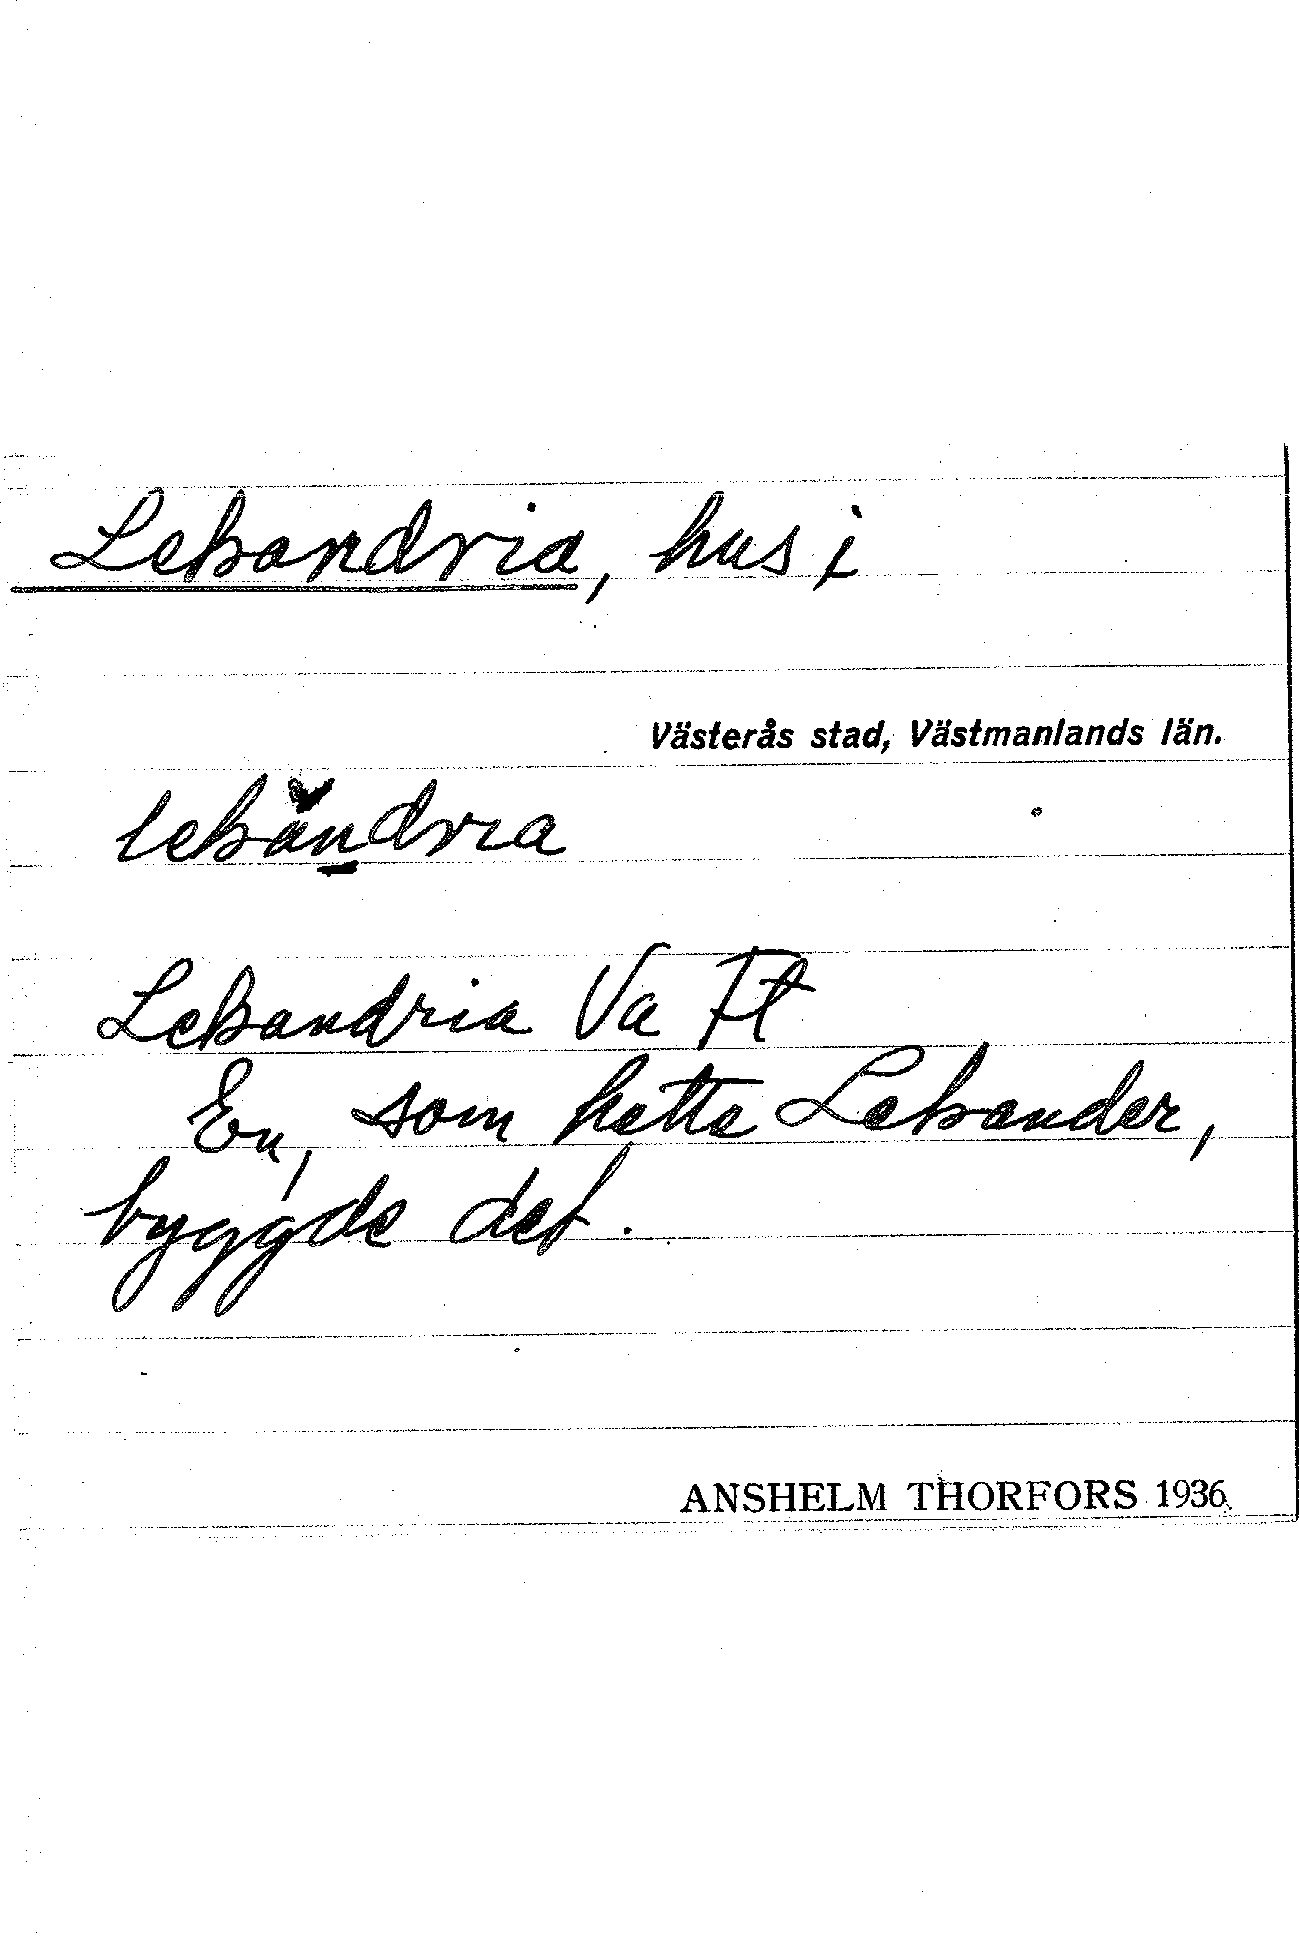 Lekandria, hus i
Västerås stad, Västmanlands län.
lekǎn̲dria
Lekandria Va Ft
En, som hette Lekander,
byggde det.
ANSHELM THORFORS 1936